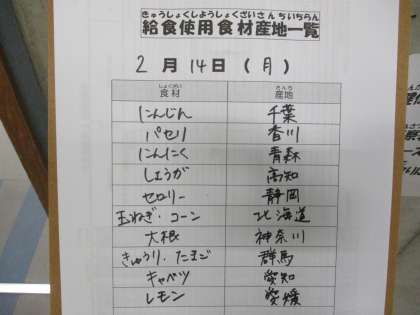 きゅうしょくしようしょくざいさんちいちらん
給食使用食材産地一覧
2月14日(月)
しょくざい さんち
食材 産地
にんじん 千葉
パセリ 香川
にんにく 青森
しょうが 高知
セロリー 静岡
玉ねぎ・コーン 北海道
大根 神奈川
きゅうり・たまご 群馬
キャベツ 愛知
レモン 愛媛